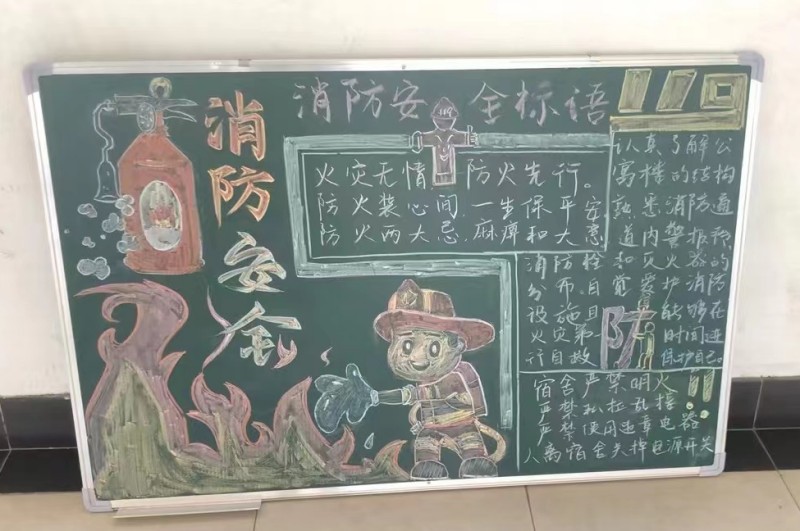 消防安全
消防安全标语
119
火灾无情 防火先行。
防火装心间.一生保平安
防火两大忌.麻痹和大意
认真了解公
寓楼的结构
熟悉消防通
道内警报
消防栓和灭火器的
分布.自觉爱护消防
设施.且能够在
火灾第一时间进
行自救 保护自己.
防
宿舍严禁明火
严禁私拉乱接
严禁使用违章电器
人离宿舍关掉电源开关